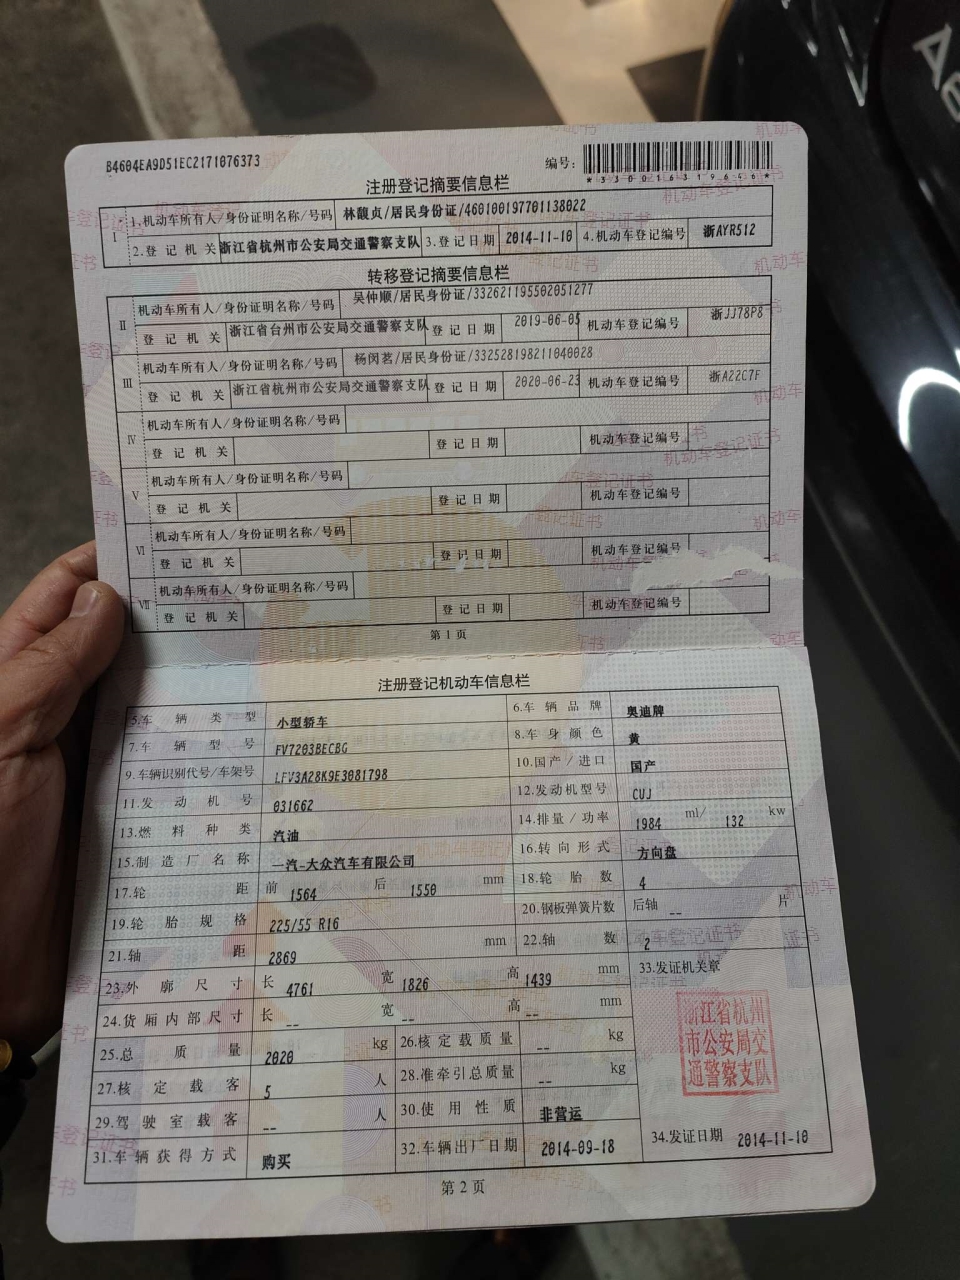 B4604EA9D51EC2171076373
编号：
*330016319646*
注册登记摘要信息栏
Ⅰ 1.机动车所有人/身份证明名称/号码 林馥贞/居民身份证/460100197701138022
2.登记机关 浙江省杭州市公安局交通警察支队 3.登记日期 2014-11-10 4.机动车登记编号 浙AYR512
转移登记摘要信息栏
Ⅱ 机动车所有人/身份证明名称/号码 吴仲顺/居民身份证/332621195502051277
登记机关 浙江省台州市公安局交通警察支队 登记日期 2019-06-05 机动车登记编号 浙JJ78P8
Ⅲ 机动车所有人/身份证明名称/号码 杨闵茗/居民身份证/332528198211040028
登记机关 浙江省杭州市公安局交通警察支队 登记日期 2020-06-23 机动车登记编号 浙A22C7F
Ⅳ 机动车所有人/身份证明名称/号码
登记机关 登记日期 机动车登记编号
Ⅴ 机动车所有人/身份证明名称/号码
登记机关 登记日期 机动车登记编号
Ⅵ 机动车所有人/身份证明名称/号码
登记机关 登记日期 机动车登记编号
Ⅶ 机动车所有人/身份证明名称/号码
登记机关 登记日期 机动车登记编号
第1页
注册登记机动车信息栏
5.车辆类型 小型轿车 6.车辆品牌 奥迪牌
7.车辆型号 FV7203BECBG 8.车身颜色 黄
9.车辆识别代号/车架号 LFV3A28K9E3081798 10.国产/进口 国产
11.发动机号 031662 12.发动机型号 CUJ
13.燃料种类 汽油 14.排量/功率 1984 ml/ 132 kw
15.制造厂名称 一汽-大众汽车有限公司 16.转向形式 方向盘
17.轮距 前 1564 后 1550 mm 18.轮胎数 4
19.轮胎规格 225/55 R16 20.钢板弹簧片数 后轴 -- 片
21.轴距 2869 mm 22.轴数 2
23.外廓尺寸 长 4761 宽 1826 高 1439 mm 33.发证机关章
24.货厢内部尺寸 长 -- 宽 -- 高 -- mm
25.总质量 2020 kg 26.核定载质量 -- kg
27.核定载客 5 人 28.准牵引总质量 -- kg
29.驾驶室载客 -- 人 30.使用性质 非营运
31.车辆获得方式 购买 32.车辆出厂日期 2014-09-18 34.发证日期 2014-11-10
浙江省杭州
市公安局交
通警察支队
第2页